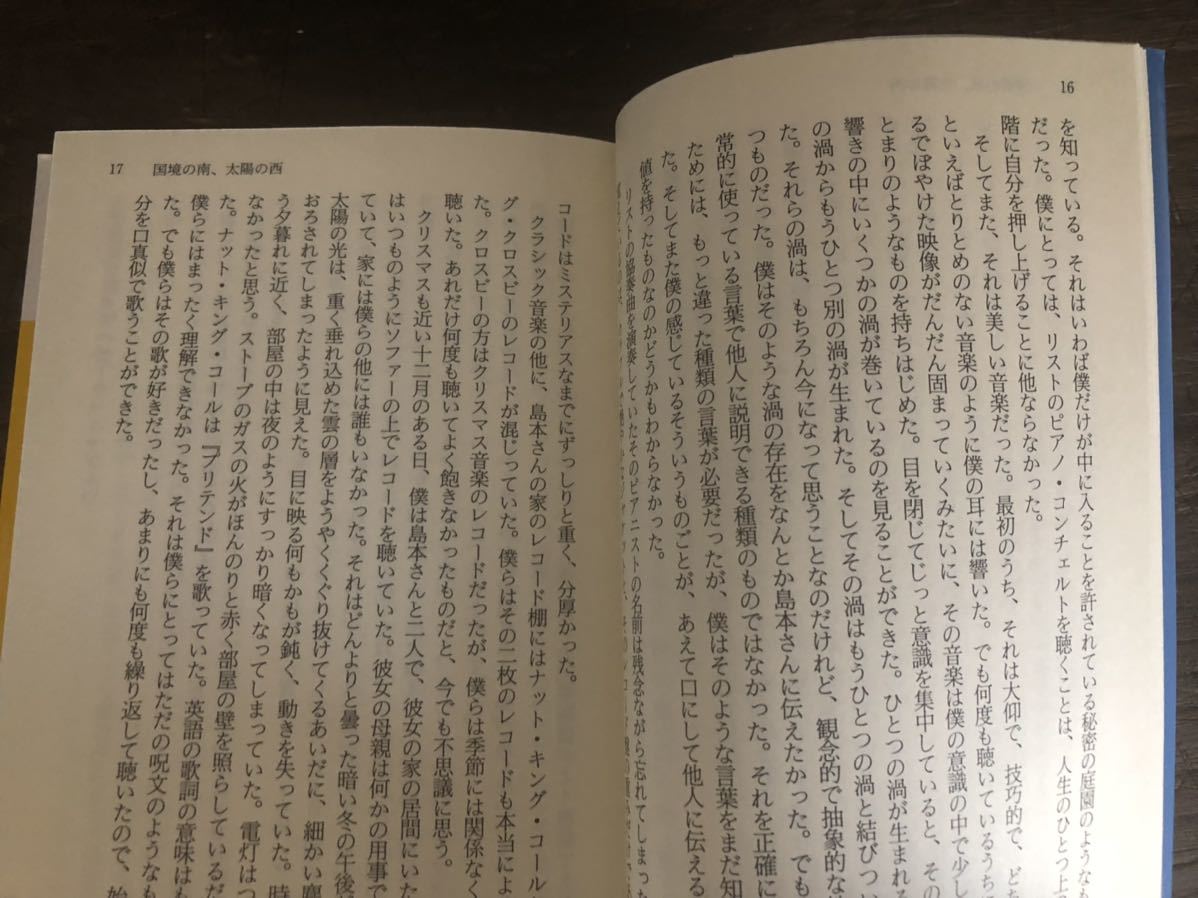 16
を知っている。それはいわば僕だけが中に入ることを許されている秘密の庭園のようなも
だった。僕にとっては、リストのピアノ・コンチェルトを聴くことは、人生のひとつ上
階に自分を押し上げることに他ならなかった。
そしてまた、それは美しい音楽だった。最初のうち、それは大仰で、技巧的で、どち
といえばとりとめのない音楽のように僕の耳には響いた。でも何度も聴いているうち
るでぼやけた映像がだんだん固まっていくみたいに、その音楽は僕の意識の中で少し
とまりのようなものを持ちはじめた。目を閉じてじっと意識を集中していると、その
響きの中にいくつかの渦が巻いているのを見ることができた。ひとつの渦が生まれ
の渦からもうひとつ別の渦が生まれた。そしてその渦はもうひとつの渦と結びつい
た。それらの渦は、もちろん今になって思うことなのだけれど、観念的で抽象的な
つものだった。僕はそのような渦の存在をなんとか島本さんに伝えたかった。でも
常的に使っている言葉で他人に説明できる種類のものではなかった。それを正確に
ためには、もっと違った種類の言葉が必要だったが、僕はそのような言葉をまだ知
た。そしてまた僕の感じているそういうものごとが、あえて口にして他人に伝える
値を持ったものなのかどうかもわからなかった。
リストの協奏曲を演奏していたそのピアニストの名前は残念ながら忘れてしまった
17 国境の南、太陽の西
コードはミステリアスなまでにずっしりと重く、分厚かった。
クラシック音楽の他に、島本さんの家のレコード棚にはナット・キング・コール
グ・クロスビーのレコードが混じっていた。僕らはその二枚のレコードも本当によ
た。クロスビーの方はクリスマス音楽のレコードだったが、僕らは季節には関係なく
聴いた。あれだけ何度も聴いてよく飽きなかったものだと、今でも不思議に思う。
クリスマスも近い十二月のある日、僕は島本さんと二人で、彼女の家の居間にいた
はいつものようにソファーの上でレコードを聴いていた。彼女の母親は何かの用事で
ていて、家には僕らの他には誰もいなかった。それはどんよりと曇った暗い冬の午後
太陽の光は、重く垂れ込めた雲の層をようやくくぐり抜けてくるあいだに、細かい塵
おろされてしまったように見えた。目に映る何もかもが鈍く、動きを失っていた。時
う夕暮れに近く、部屋の中は夜のようにすっかり暗くなってしまっていた。電灯はつ
なかったと思う。ストーブのガスの火がほんのりと赤く部屋の壁を照らしているだ
た。ナット・キング・コールは『プリテンド』を歌っていた。英語の歌詞の意味はも
僕らにはまったく理解できなかった。それは僕らにとってはただの呪文のようなも
た。でも僕らはその歌が好きだったし、あまりにも何度も繰り返して聴いたので、始
分を口真似で歌うことができた。